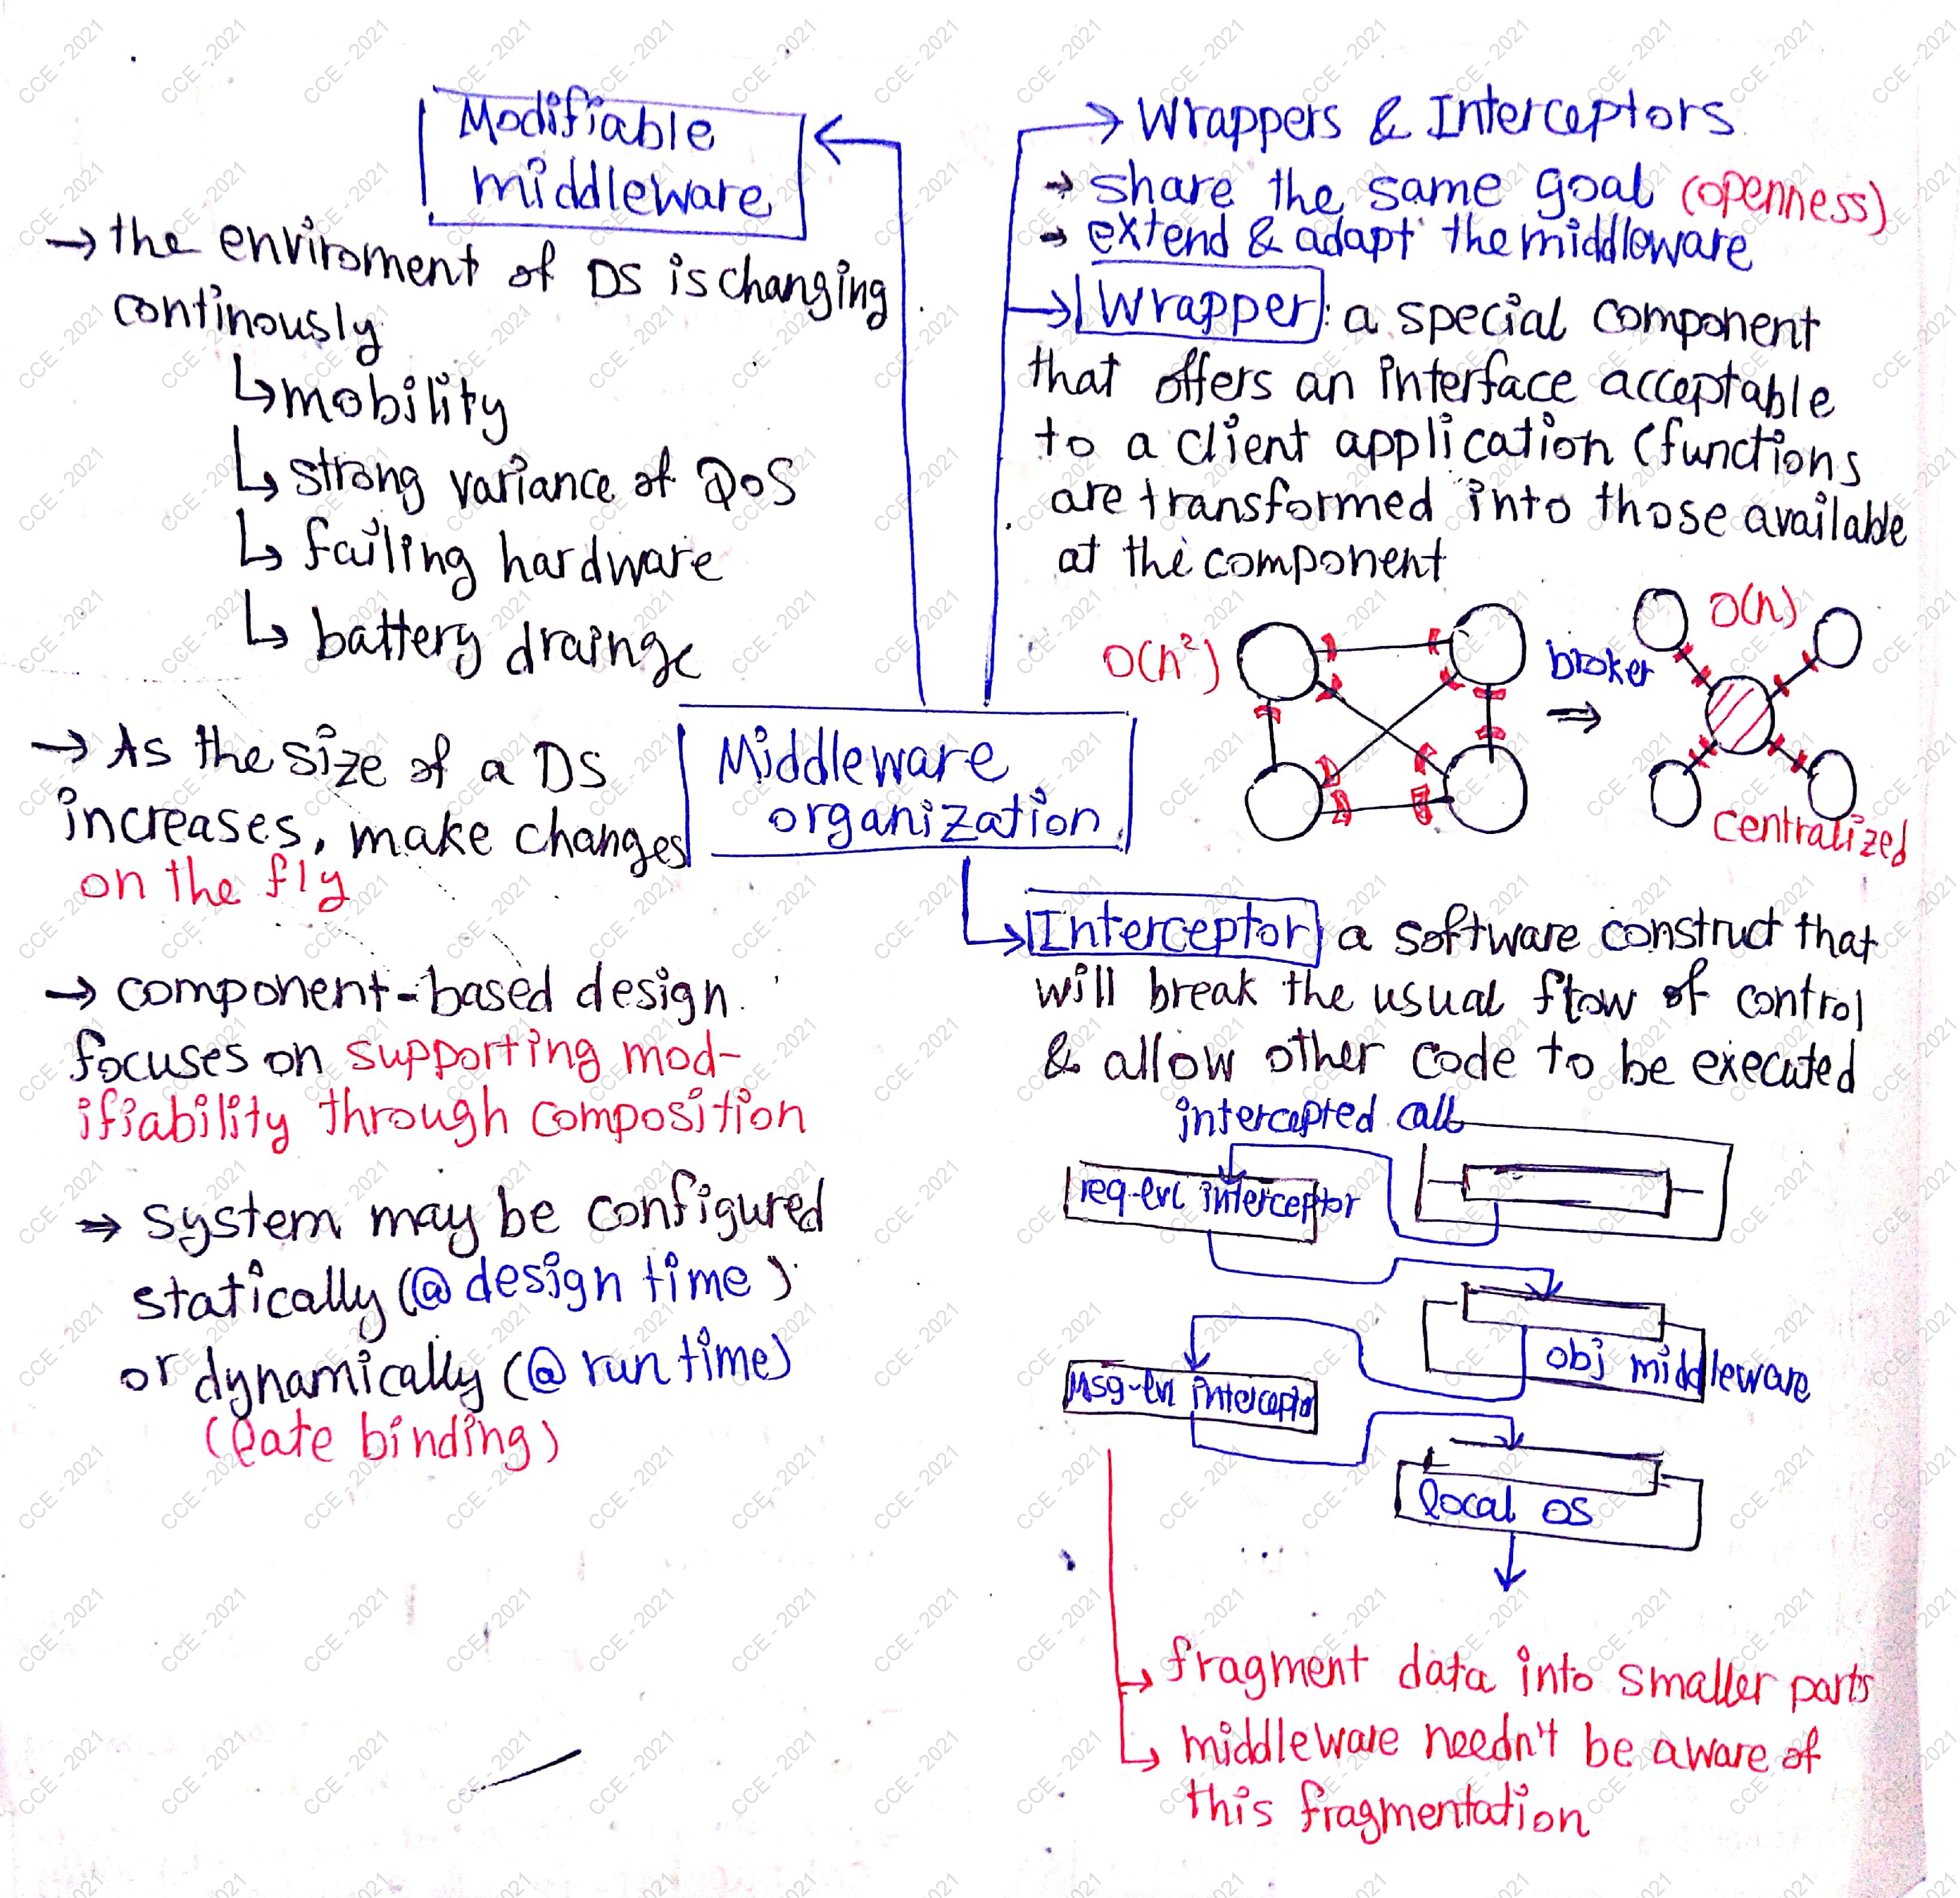 Modifiable
middleware
→ the enviroment of DS is changing
continously
↳ mobility
↳ strong variance of QoS
↳ failing hardware
↳ battery drainge
→ As the size of a DS
increases, make changes
on the fly
→ component-based design
focuses on supporting mod-
ifiability through composition
→ system may be configured
statically (@ design time)
or dynamically (@ run time)
(late binding)
Middleware
organization
→ Wrappers & Interceptors
→ share the same goal (openness)
→ extend & adapt the middleware
→ Wrapper: a special component
that offers an interface acceptable
to a client application (functions
are transformed into those available
at the component
O(n²)
broker
⇒
O(n)
centralized
→ Interceptor a software construct that
will break the usual flow of control
& allow other code to be executed
intercepted call
req-lvl interceptor
obj middleware
Msg-lvl intercepto
local OS
→ fragment data into smaller parts
↳ middleware needn't be aware of
this fragmentation
CCE - 2021